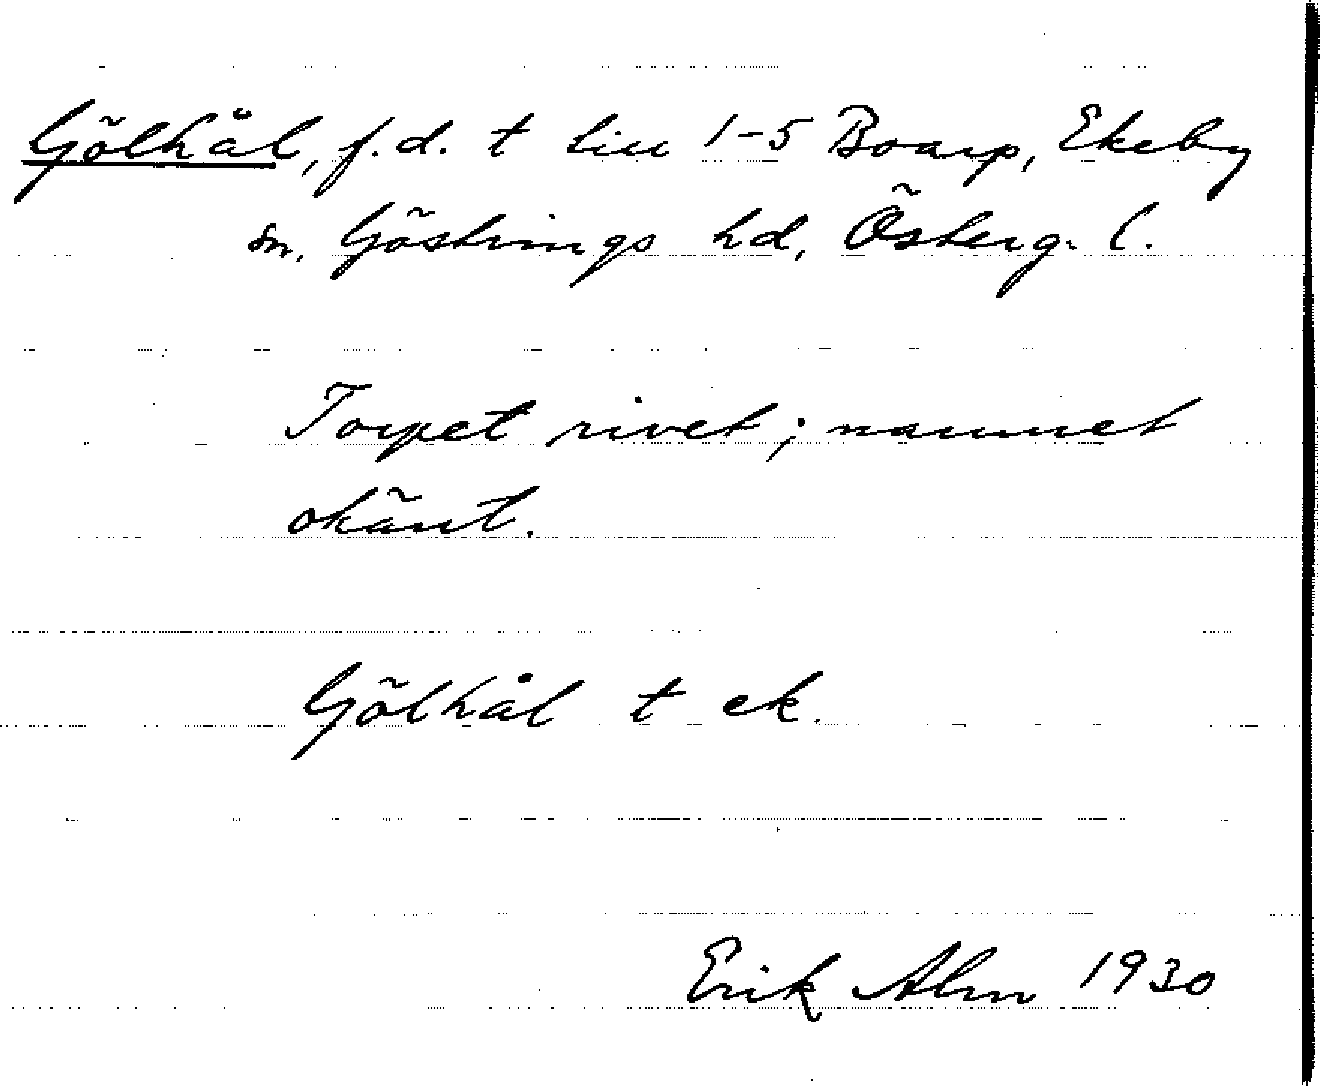 Gölhål, f.d. t liu 1-5 Boarp, Ekeby
sn, Göstrings hd, Österg. l.
Torpet rivet; namnet
okänt.
Gölhål t ek.
Erik Alm 1930